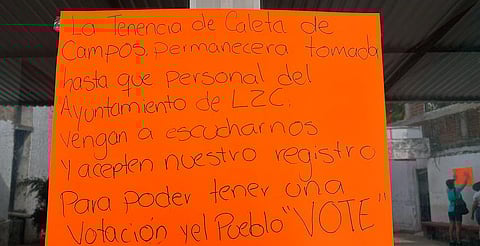 La Tenencia de Caleta de
Campos. permanecera tomada
hasta que personal del
Ayuntamiento de LZC.
vengan a escucharnos
y acepten nuestro registro
Para poder tener una
Votación y el Pueblo "VOTE"